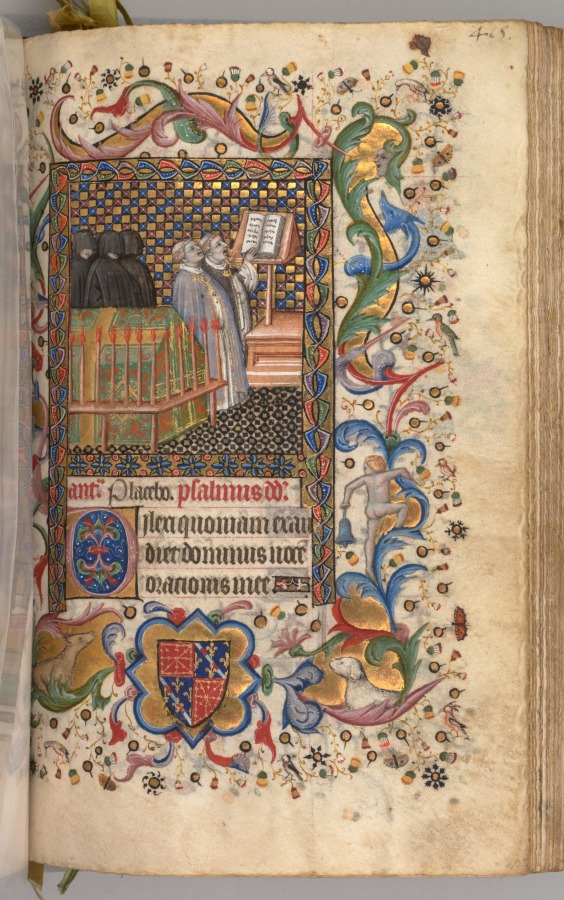 425.
ant. Placebo. psalmus dd.
Dilexi quoniam exau
diet dominus vocē
orationis mee